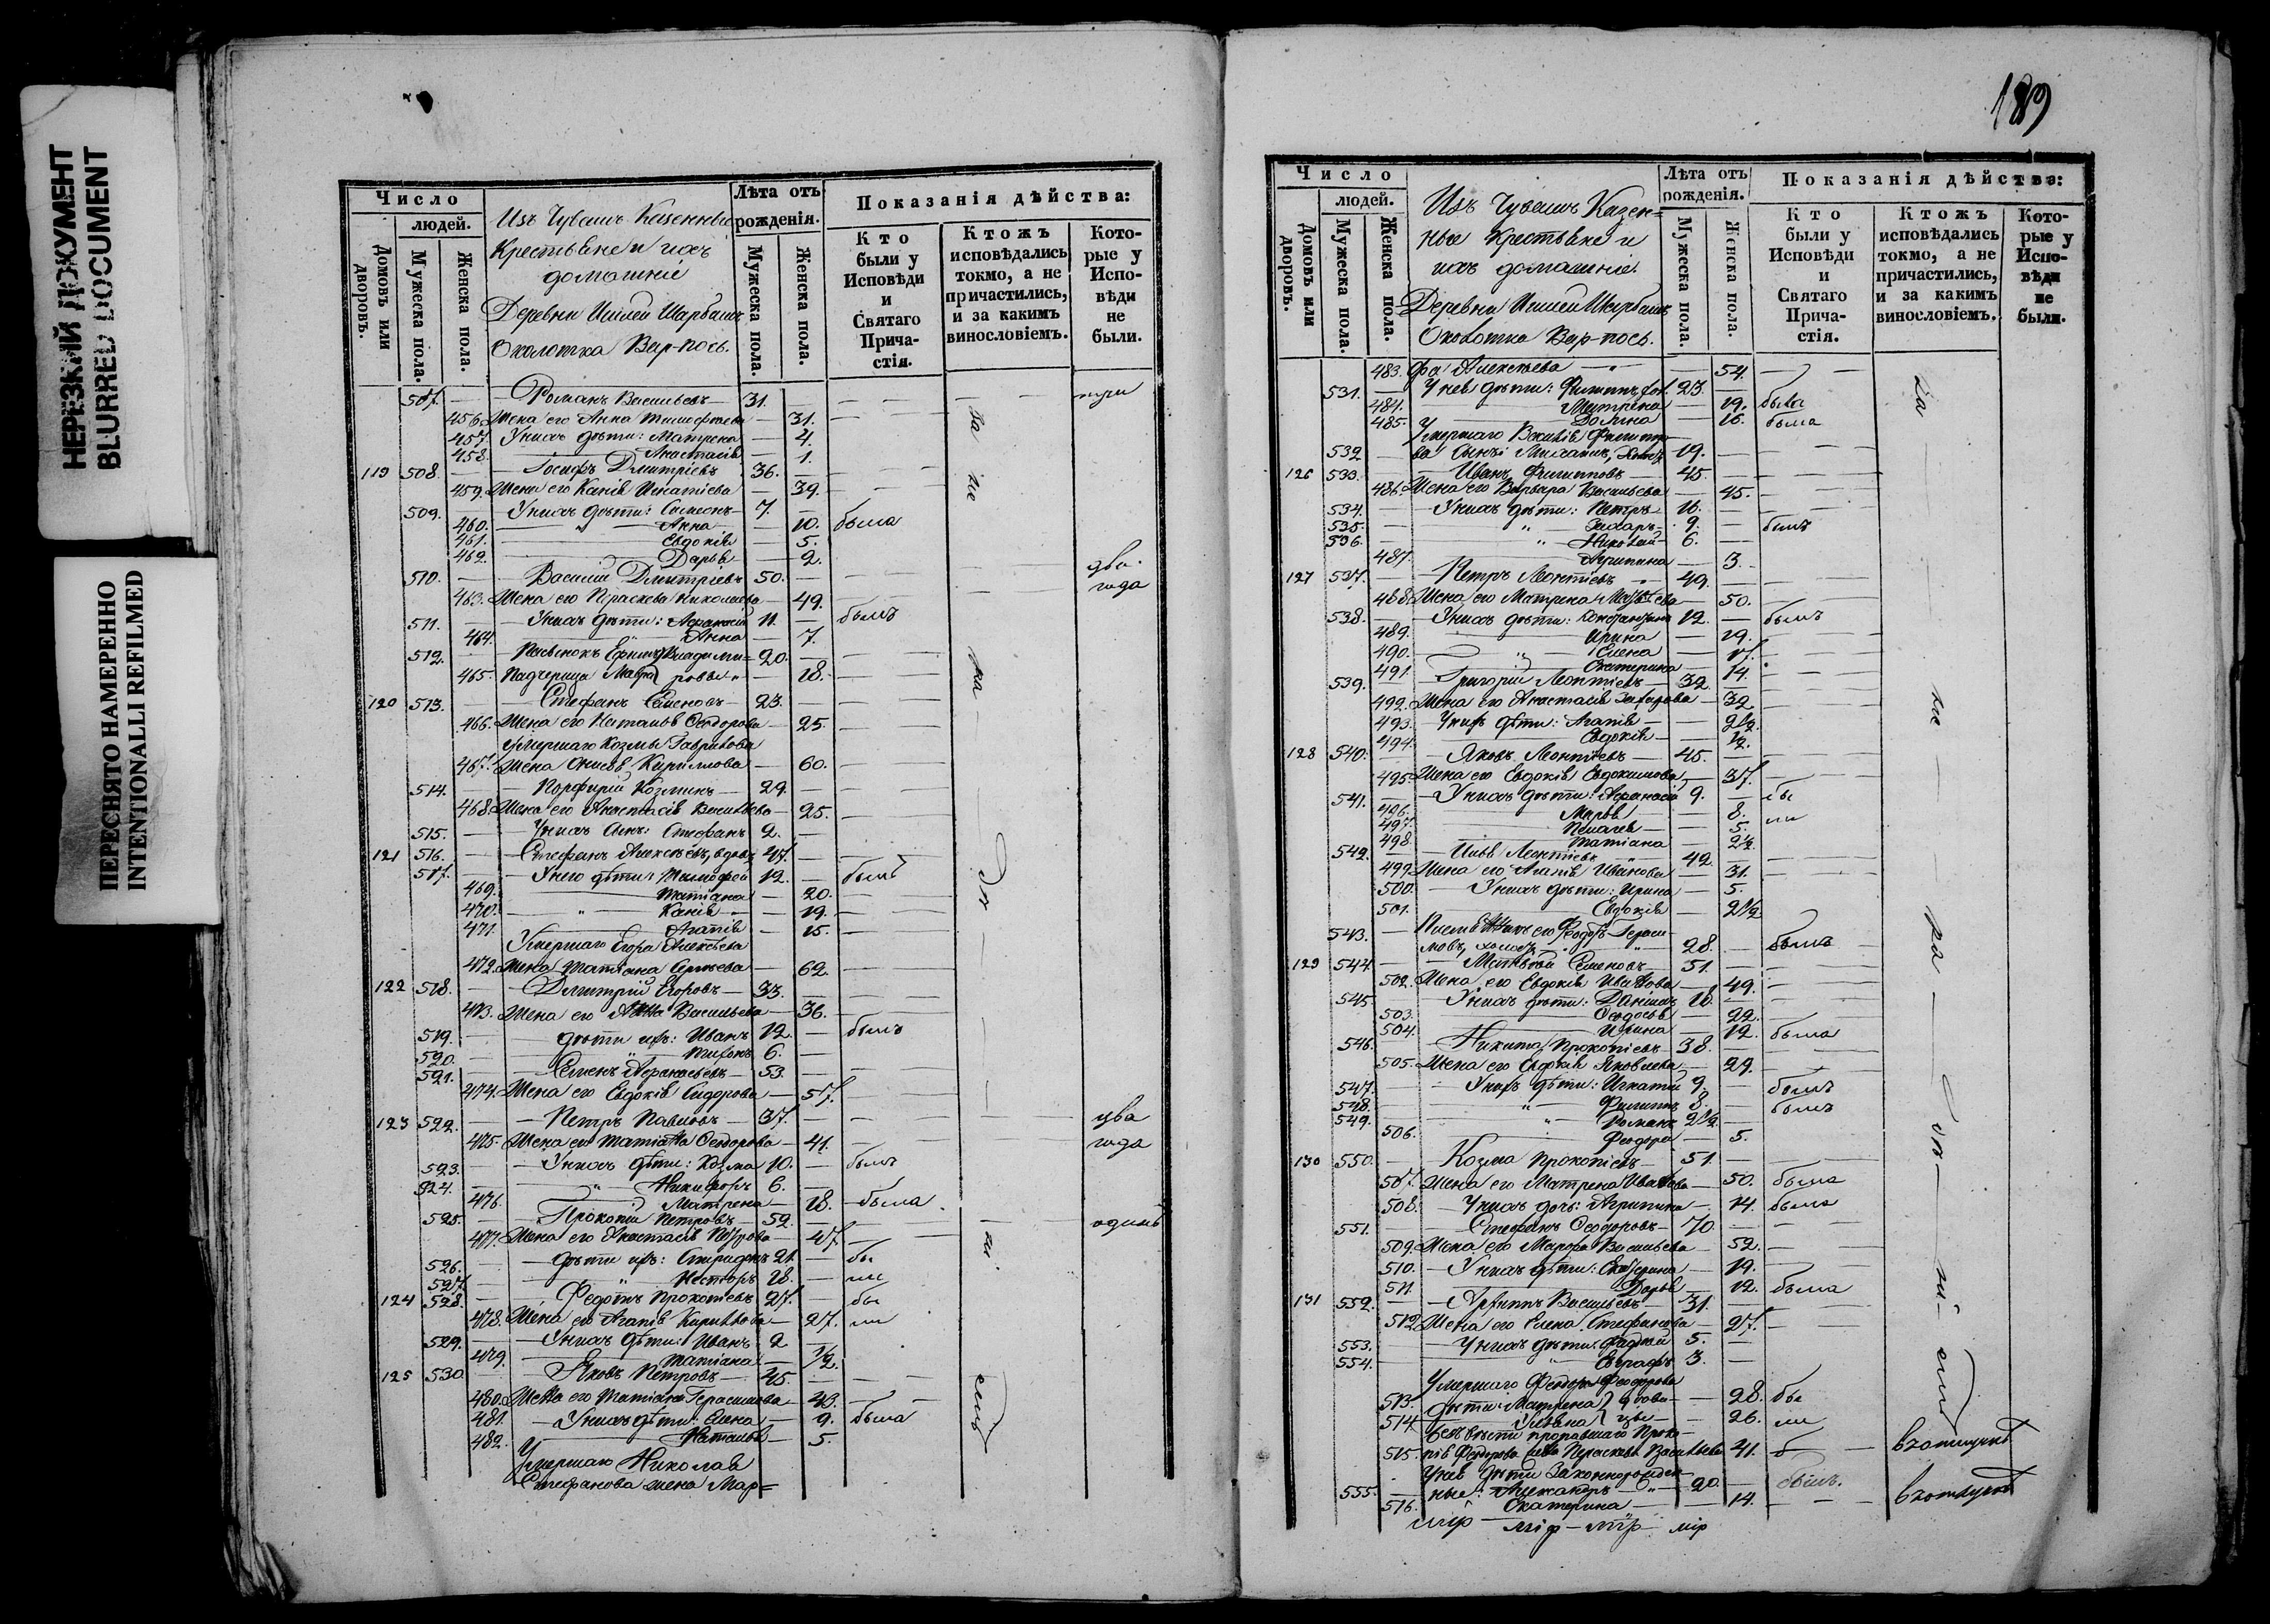 НЕРЕЗКИЙ ДОКУМЕНТ
BLURRED DOCUMENT
ПЕРЕСНЯТО НАМЕРЕННО
INTENTIONALLI REFILMED
Число
людей.
Домовъ или дворовъ.
Мужеска пола.
Женска пола.
Изъ Чувашъ Казенные
Крестьяне и ихъ
домашніе
Деревни
Околотка Вар-посъ.
Лѣта отъ рожденія.
Мужеска пола.
Женска пола.
Показанія дѣйства:
Кто были у Исповѣди и Святаго Причастія.
Ктожъ исповѣдались токмо, а не причастились, и за какимъ винословіемъ.
Которые у Исповѣди не были.
507. Романъ Васильевъ 31. три
456. Жена его Анна Тимофеева 31.
457. У нихъ дѣти: Матрена 4.
458. Анастасія 1.
119 508. Іосифъ Дмитріевъ 36.
459. Жена его Игнатіева 39.
509. У нихъ дѣти: Симеонъ 7.
460. Анна 10. была
461. Евдокія 5.
462. Дарья 2.
510. Василій Дмитріевъ 50. два
463. Жена его Параскева Николаева 49. года
511. У нихъ дѣти: Афанасій 11. былъ
464. Анна 7.
512. 20.
465. Падчерица Мавра 18.
120 513. Стефанъ Семеновъ 23.
466. Жена его Наталья Феодорова 25.
Умершаго Козмы Гаврилова
467. Жена Кириллова 60.
514. Порфирій Козминъ 29.
468. Жена его Анастасія Васильева 25.
515. У нихъ сынъ: Стефанъ 2.
121 516. Стефанъ Алексѣевъ, вдовъ 47.
517. У него дѣти: Тимофей 12. былъ
469. Татіана 20.
470. 19.
471. Агапія 15.
Умершаго Егора Алексѣева
472. Жена Татіана Сергѣева 62.
122 518. Дмитрій Егоровъ 33.
473. Жена его Анна Васильева 36.
519. дѣти ихъ: Иванъ 12. былъ
520. Тихонъ 6.
521. Семенъ Афанасьевъ 53.
474. Жена его Евдокія Сидорова 57.
123 522. Петръ Павловъ 37. два
475. Жена его Татіана Феодорова 41. года
523. У нихъ дѣти: Козма 10. былъ
524. Никифоръ 6.
476. Матрена 18. была
525. Прокопій Петровъ 52. одинъ
477. Жена его Анастасія Петрова 47.
526. дѣти ихъ: Спиридонъ 21. бы
527. Несторъ 18. ли
124 528. Федотъ Прокопіевъ 27. бы
478. Жена его Агапія Кириллова 27. ли
529. У нихъ дѣти: Иванъ 2
479. Татіана 1/2.
125 530. Яковъ Петровъ 45.
480. Жена его Татіана Герасимова 43.
481. У нихъ дѣти: Елена 9. была
482. Наталья 5.
Умершаго Николая
Стефанова жена Мар=
за не ра до ні емъ
189
Число
людей.
Домовъ или дворовъ.
Мужеска пола.
Женска пола.
Изъ Чувашъ Казен=
ные Крестьяне и
ихъ домашніе.
Деревни
Околотка Вар-посъ.
Лѣта отъ рожденія.
Мужеска пола.
Женска пола.
Показанія дѣйства:
Кто были у Исповѣди и Святаго Причастія.
Ктожъ исповѣдались токмо, а не причастились, и за какимъ винословіемъ.
Которые у Исповѣди не были.
483. фа Алексѣева 54.
531. У нея дѣти: Филиппъ, хол. 23.
484. Матрена 19. была
485. 16. была
Умершаго Василія Филиппо
532 ва сынъ: 19.
126 533. Иванъ Филипповъ 45.
486. Жена его Варвара Васильева 45.
534. У нихъ дѣти: Петръ 16.
535. Захаръ 9. былъ
536. Николай 6.
487. Агрипина 3.
127 537. Петръ Леонтіевъ 49.
488. Жена его Матрена Матвѣева 50.
538. У нихъ дѣти: Константинъ 12. былъ
489. Ирина 19.
490. Елена 17.
491. Екатерина 14.
539. Григорій Леонтіевъ 32.
492. Жена его Анастасія Захарова 32
493. У нихъ дѣти: Агапія 2 1/2.
494. Евдокія 1/2.
128 540. Яковъ Леонтіевъ 45.
495. Жена его Евдокія Евдокимова 37.
541. У нихъ дѣти: Афанасій 9. бы
496. Марья 8. ли
497. Пелагея 5.
498. Татіана 2 1/2
542. Илья Леонтіевъ 42
499. Жена его Агапія Иванова 31.
500. У нихъ дѣти: Ирина 5.
501. Евдокія 2 1/2
543. Племянникъ его Феодоръ Гераси
мовъ, холостъ 28. былъ
129 544. Матвѣй Семеновъ 51.
502. Жена его Евдокія Иванова 49.
545. У нихъ дѣти: Даніилъ 18.
503. Феодосья 22.
504. Ирина 12. была
546. Никита Прокопіевъ 38.
505. Жена его Евдокія Яковлева 29.
547. У нихъ дѣти: Игнатій 9. былъ
548. Филиппъ 8. былъ
549. Романъ 2 1/2
506. Феодора 5.
130 550. Козма Прокопіевъ 51.
507. Жена его Матрена Иванова 50. была
508. У нихъ дочь: Агрипина 14. была
551. Стефанъ Феодоровъ 70
509. Жена его Марфа Васильева 52.
510. У нихъ дѣти: Екатерина 19.
511. Дарья 12. была
131 552. Архипъ Васильевъ 31.
512. Жена его Елена Стефанова 27.
553. У нихъ дѣти: Фаддей 5.
554. Евграфъ 3.
Умершаго Феодора Феодорова
513. дѣти: Матрена дѣви 28. бы
514. Ульяна цы 26. ли
безъ вѣсти пропавшаго Проко
515. пія Феодорова жена Параскева Васильева 41.
У нея дѣти законнорожден
555. ные: Александръ 20. былъ.
516. Екатерина 14.
за не ра до ні емъ